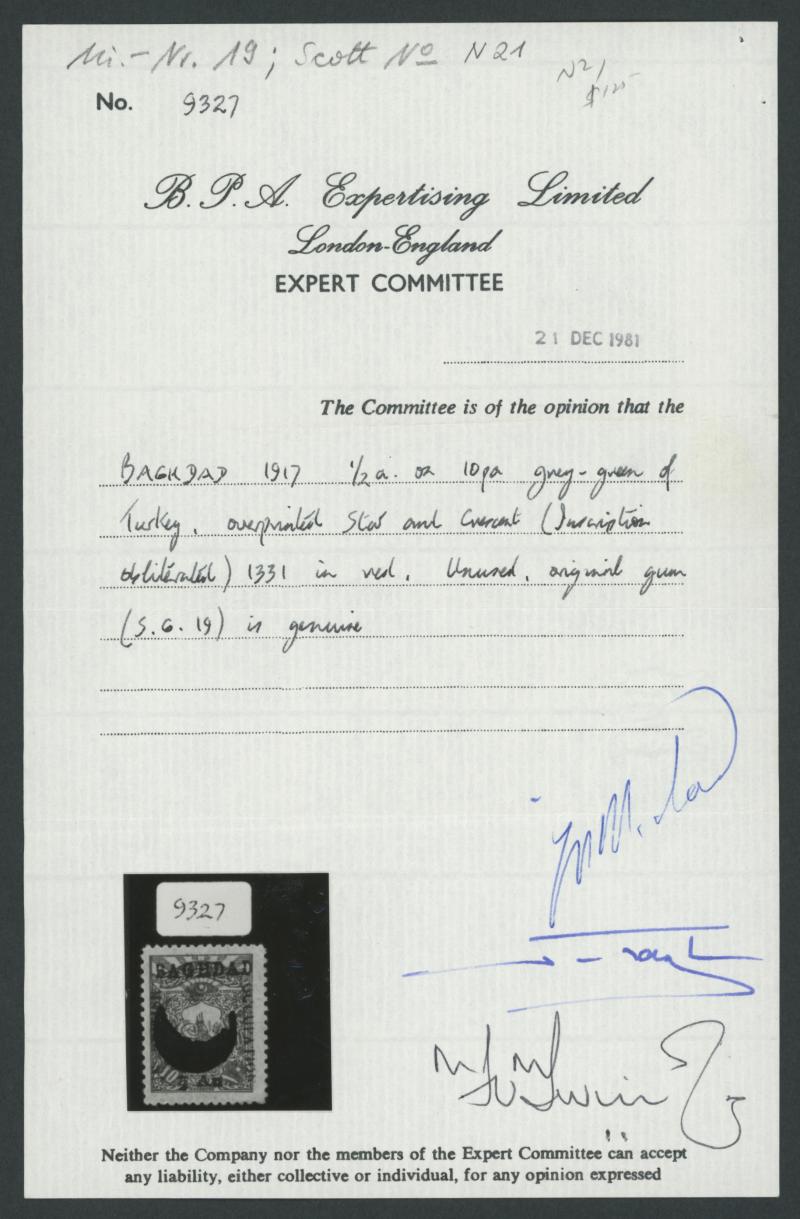 Mi.-Nr. 19; Scott No N21
N21
$125-
No. 9327
B.P.A. Expertising Limited
London-England
EXPERT COMMITTEE
21 DEC 1981
The Committee is of the opinion that the
BAGHDAD 1917 ½a. on 10pa grey-green of
Turkey, overprinted Star and Crescent (Inscription
obliterated) 1331 in red. Unused, original gum
(S.G. 19) is genuine
9327
BAGHDAD
10
½ An
Neither the Company nor the members of the Expert Committee can accept
any liability, either collective or individual, for any opinion expressed